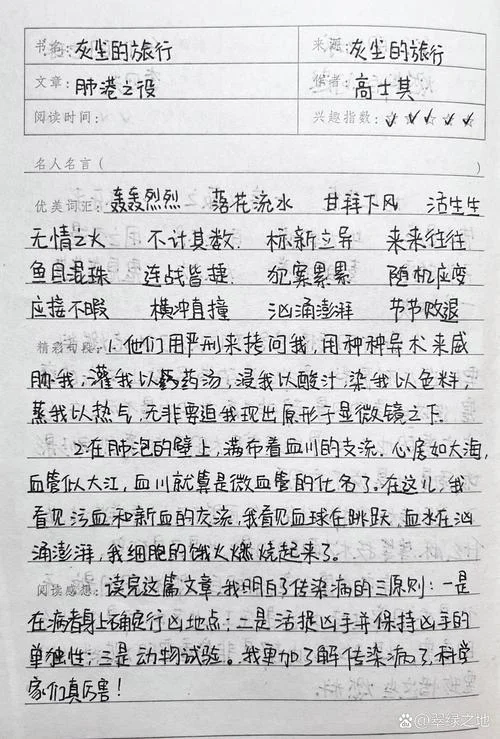 书名：灰尘的旅行 来源：灰尘的旅行
文章：肺港之役 作者：高士其
阅读时间： 兴趣指数：✓✓✓✓✓
名人名言（ ）
优美词汇：轰轰烈烈 落花流水 甘拜下风 活生生
无情之火 不计其数 标新立异 来来往往
鱼目混珠 连战皆捷 犯案累累 随机应变
应接不暇 横冲直撞 汹涌澎湃 节节败退
精彩句段：1.他们用严刑来拷问我，用种种异术来威
胁我，灌我以药汤，浸我以酸汁，染我以色料，
蒸我以热气，无非要迫我现出原形于显微镜之下。
2.在肺泡的壁上，满布着血川的支流。心房如大海，
血管似大江，血川就算是微血管的化名了。在这儿，我
看见污血和新血的交流，我看见血球在跳跃，血水在汹
涌澎湃，我细胞的饿火燃烧起来了。
阅读感想：读完这篇文章，我明白了传染病的三原则：一是
在病者身上确定行凶地点；二是活捉凶手并保持凶手的
单独性；三是动物试验。我更加了解传染病了，科学
家们真厉害！
百家号/翠绿之地